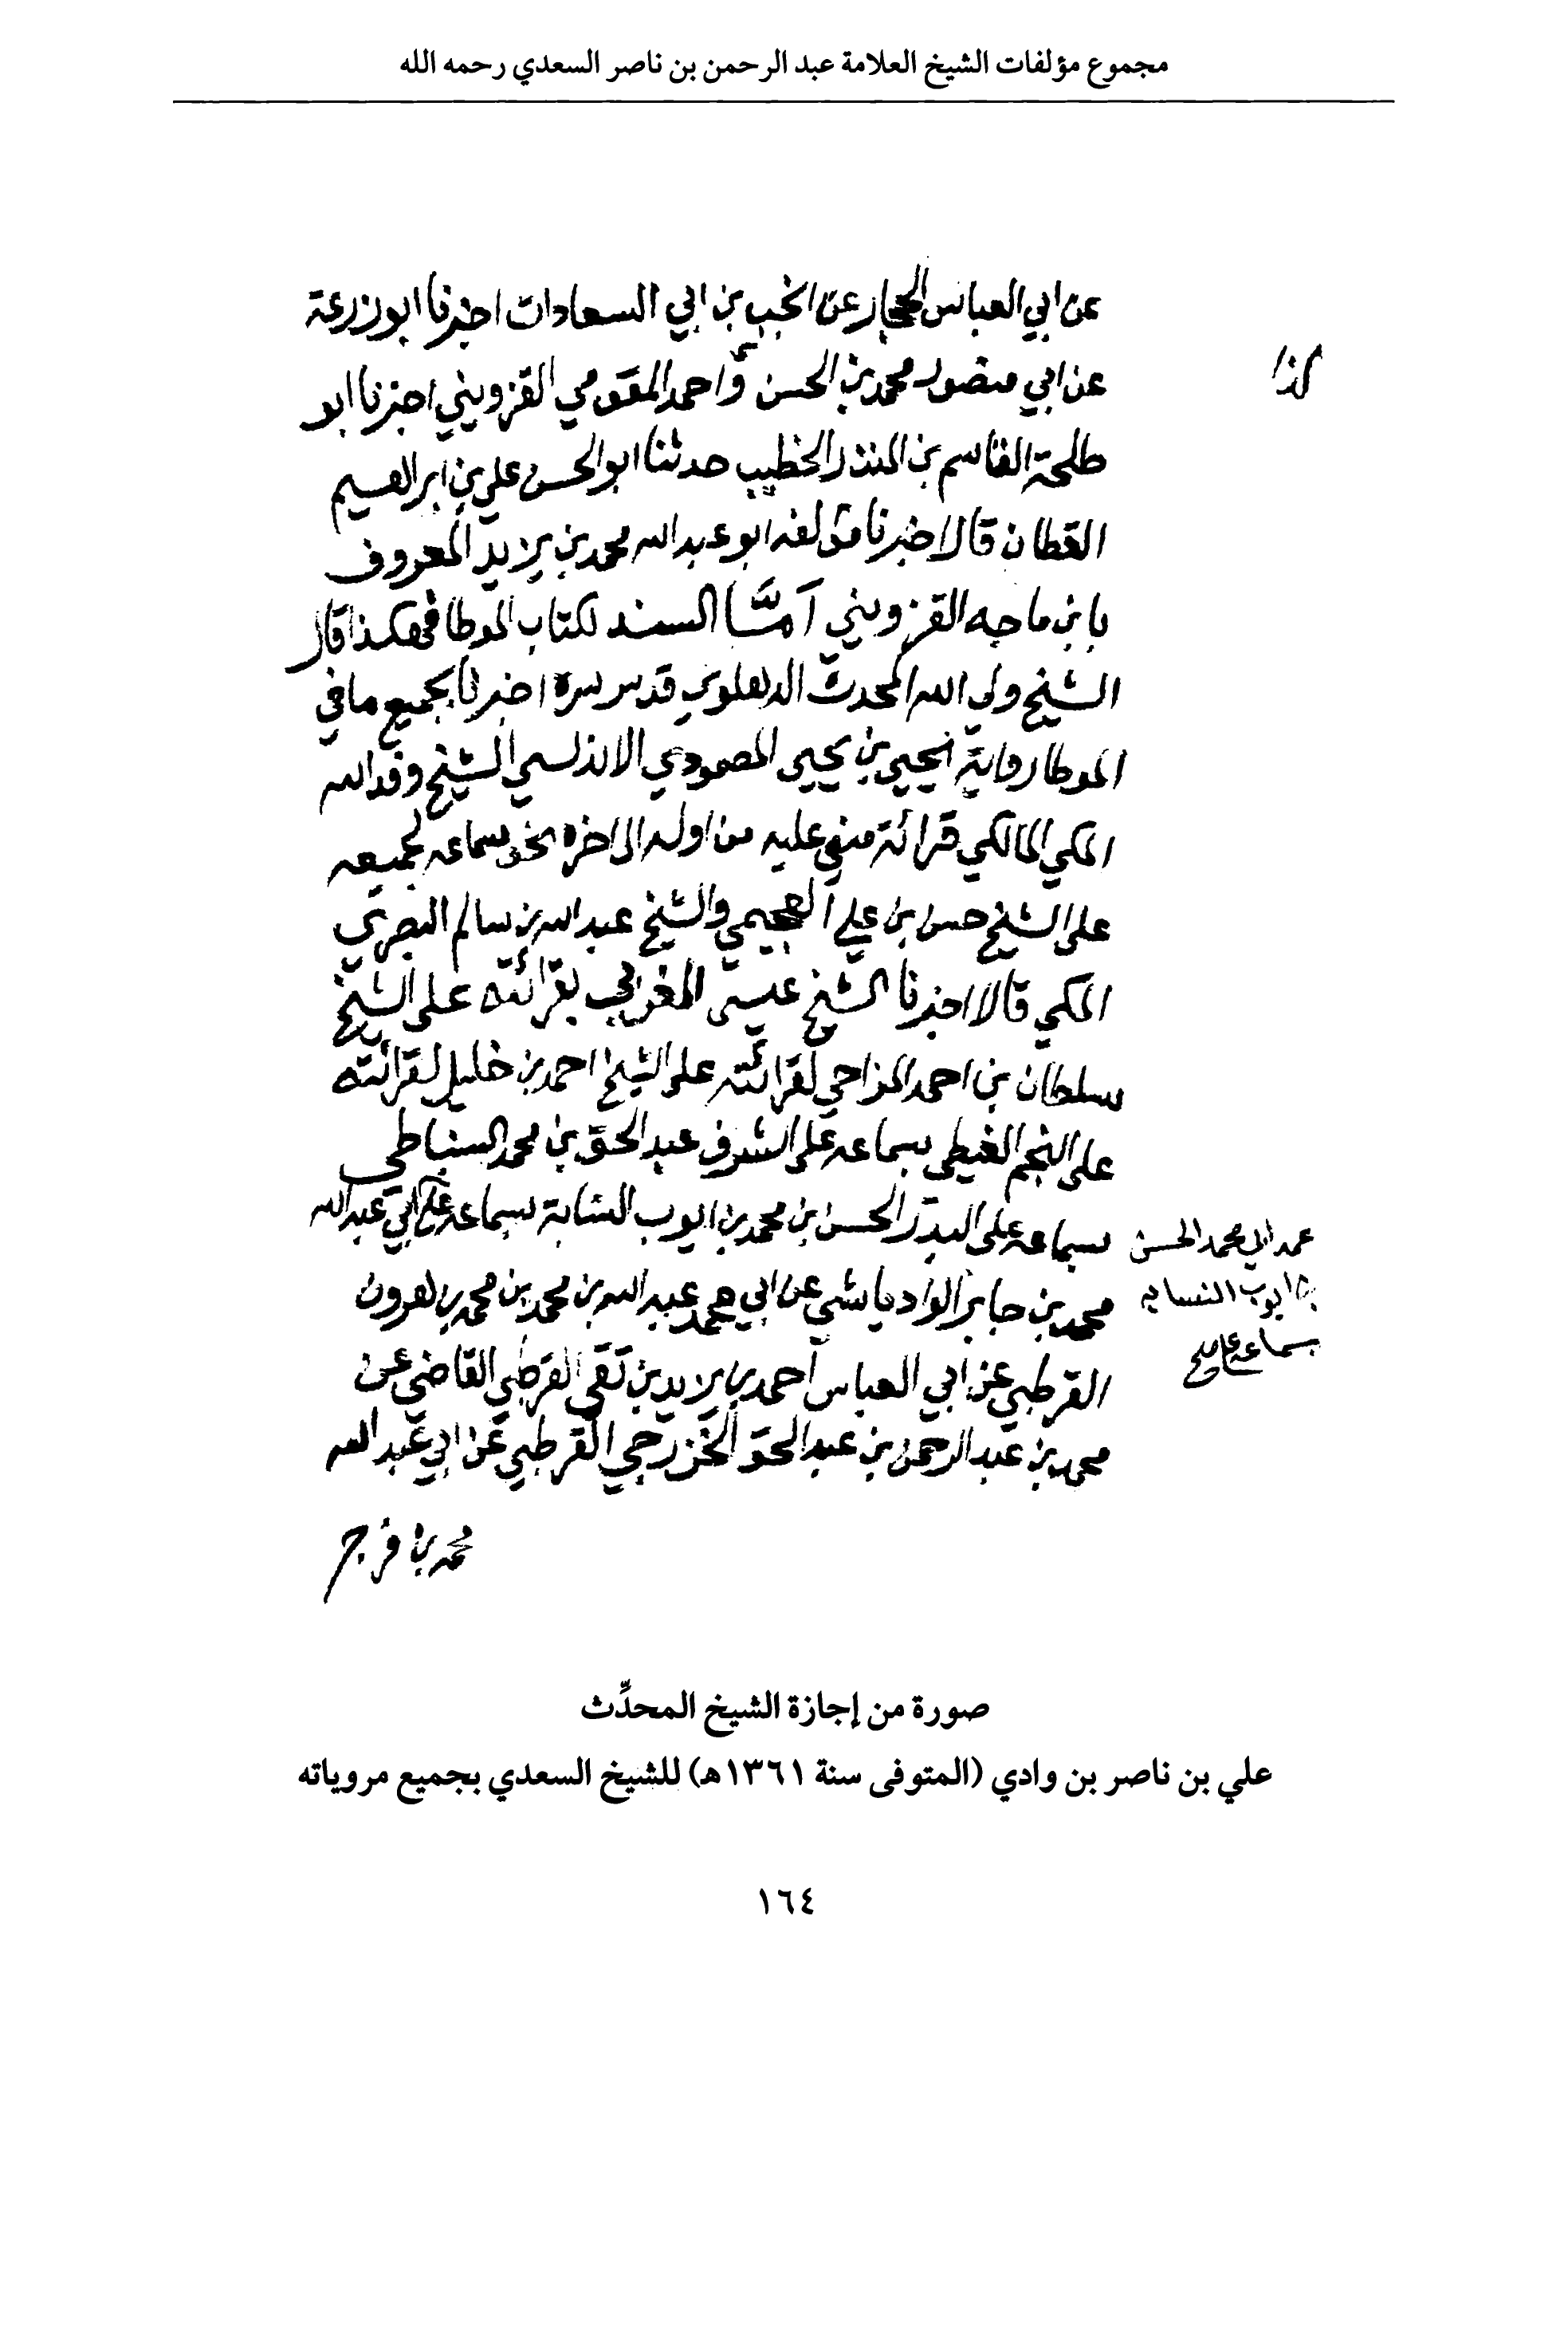 مجموع مؤلفات الشيخ العلامة عبد الرحمن بن ناصر السعدي رحمه الله
عن ابي العباس الحجار عن انجب بن ابي السعادات اخبرنا ابو زرعة
كذا
عن ابي منصور محمد بن الحسن واحمد المقومي القزويني اخبرنا ابو
طلحة القاسم بن المنذر الخطيب حدثنا ابو الحسن علي بن ابراهيم
القطان قال اخبرنا مؤلفه ابو عبد الله محمد بن يزيد المعروف
بابن ماجه القزويني امَّا السند لكتاب الموطا فهكذا قال
الشيخ ولي الله المحدث الدهلوي قدس سره اخبرنا بجميع ما في
الموطا رواية يحيي بن يحيى المصمودي الاندلسي الشيخ وفد الله
المكي المالكي قرائة مني عليه من اوله الى اخره بسماعه لجميعه
على الشيخ حسن بن علي العجيمي والشيخ عبد الله بن سالم البصري
المكي قالا اخبرنا الشيخ عيسى المغربي بقرائته على الشيخ
سلطان بن احمد المزاحي لقرائته على الشيخ احمد بن خليل لقرائته
على النجم الغيطي بسماعه على الشرف عبد الحق بن محمد السنباطي
بسماعه على البدر الحسن بن محمد بن ايوب النسابة بسماعه على ابي عبد الله
ابي محمد الحسن
بن ايوب النسابه
بسماعه على
محمد بن جابر الوادياشي عن ابي محمد عبد الله بن محمد بن محمد بن هرون
القرطبي عن ابي العباس احمد بن يزيد بن تقي القرطبي القاضي عن
محمد بن عبد الرحمن بن عبد الحق الخزرجي القرطبي عن ابي عبد الله
محمد بن فرج
صورة من إجازة الشيخ المحدِّث
علي بن ناصر بن وادي (المتوفى سنة ١٣٦١هـ) للشيخ السعدي بجميع مروياته
١٦٤